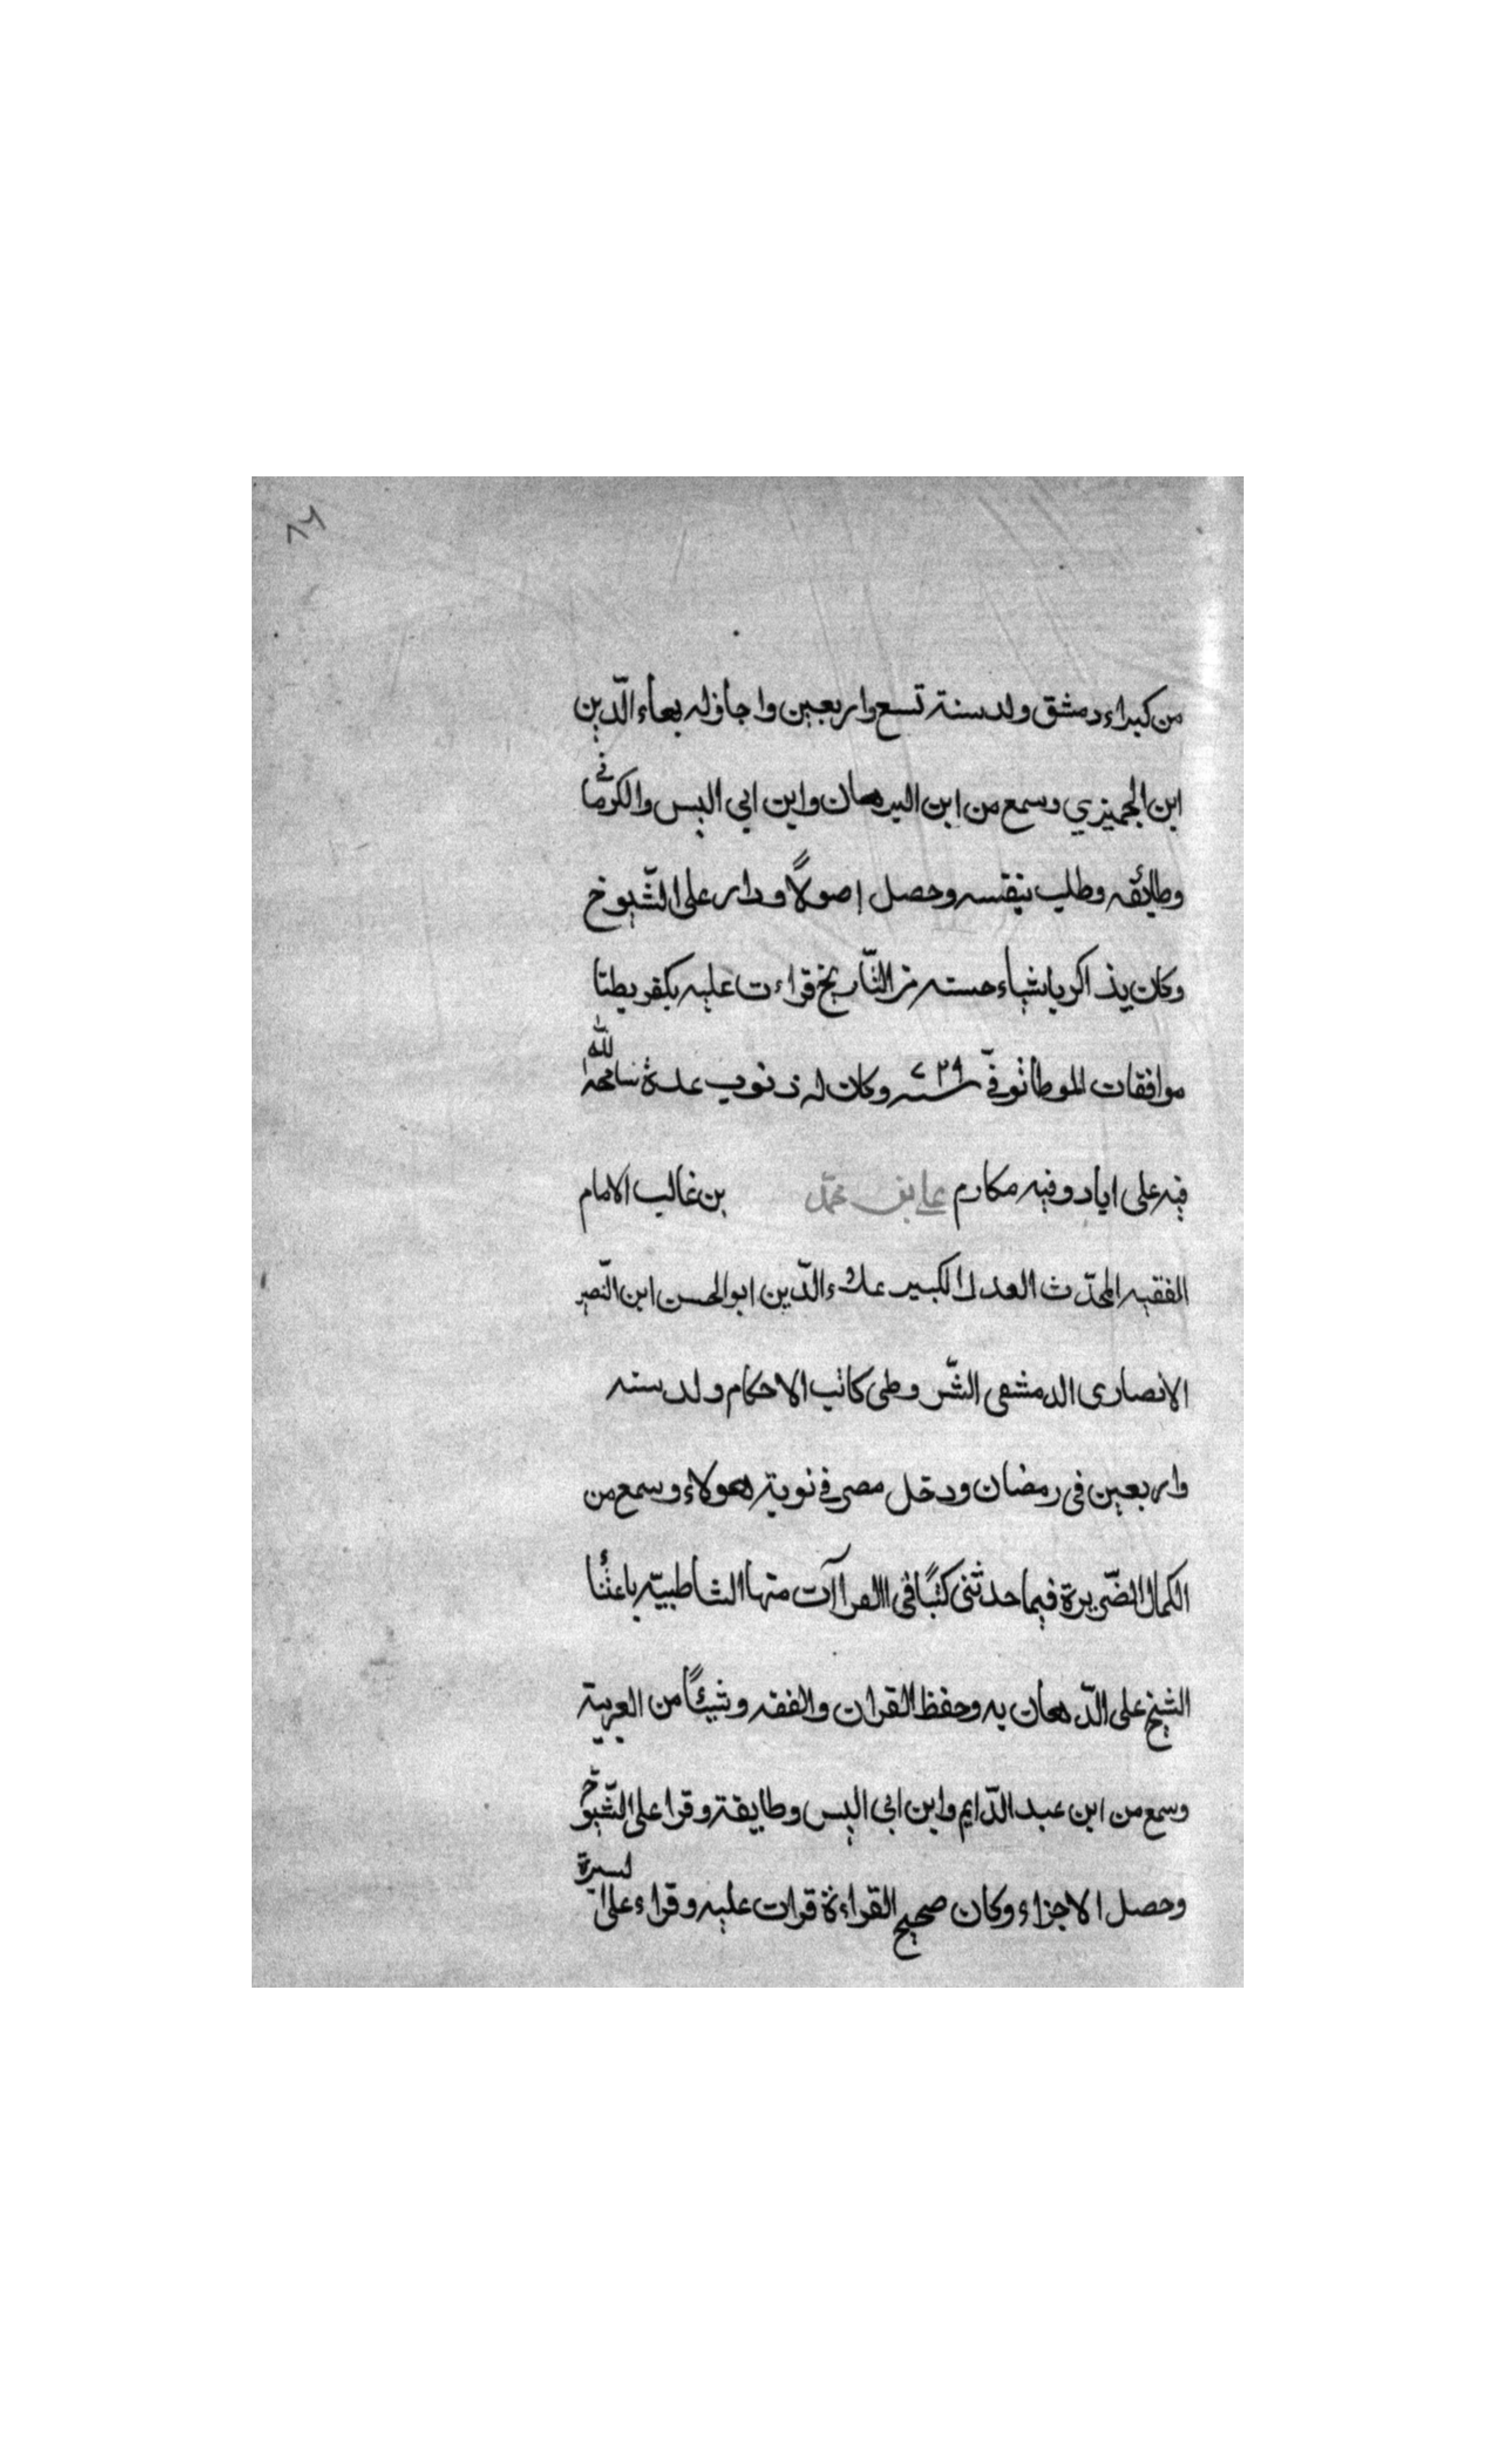 ٨٦
من كبراء دمشق ولد سنة تسع واربعين واجاز له بهاء الدّين
ابن الجميزي وسمع من ابن البرهان وابن ابي اليس والكرماني
وطائفه وطلب بنفسه وحصل اصولاً ودار على الشّيوخ
وكان يذاكر باشياء حسنه من التّاريخ قراءت عليه بكفر بطنا
موافقات الموطا توفّي سنه ٧٢٩ وكان له ذنوب عدة سامحه الله
فيه على اياد وفيه مكارم علي بن محمّد بن غالب الامام
الفقيه المحدّث العدل الكبير علاء الدّين ابو الحسن ابن النّصير
الانصارى الدمشقى الشّروطى كاتب الاحكام ولد سنه
واربعين فى رمضان ودخل مصر في نوبة هولاء وسمع من
الكمال الضّريرة فيما حدثنى كتبًا فى القراآت منها الشاطبيّه
الشيخ على الدّهان به وحفظ القران والفقه وشيئًا من العربية
وسمع من ابن عبد الدّايم وابن ابى اليس وطايفة وقرا على الشّيوخ
وحصل الاجزاء وكان صحيح القراءة قرات عليه وقراء على